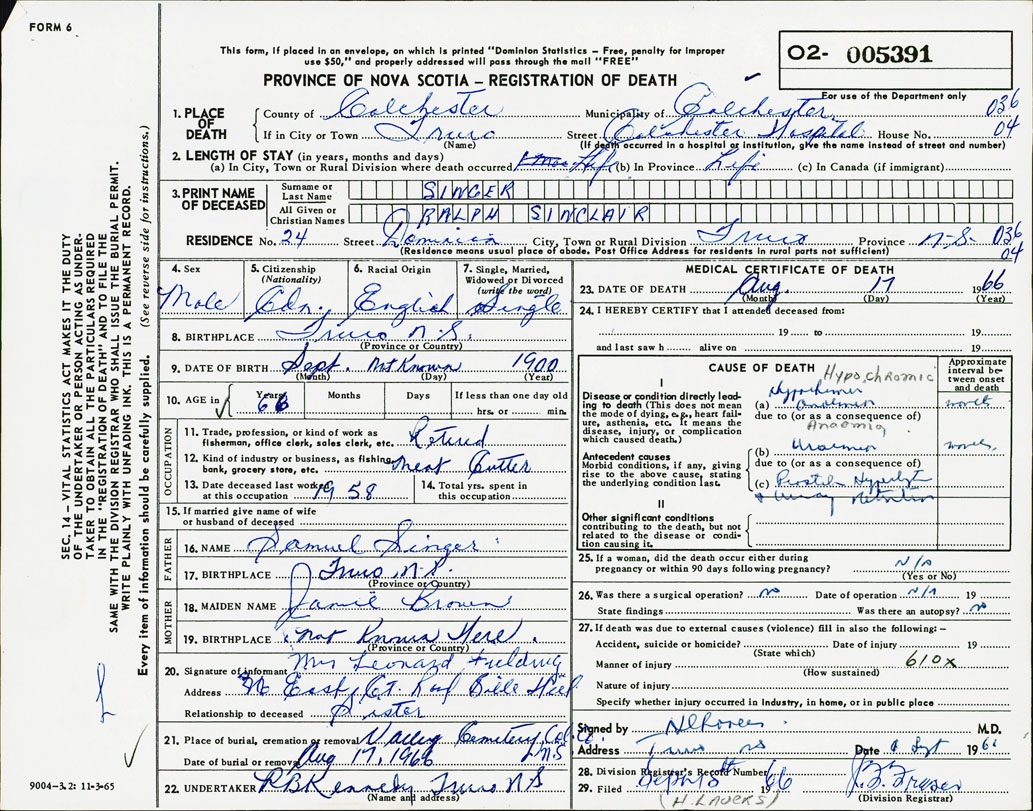 FORM 6
This form, if placed in an envelope, on which is printed "Dominion Statistics – Free, penalty for improper
use $50," and properly addressed will pass through the mail "FREE"
PROVINCE OF NOVA SCOTIA – REGISTRATION OF DEATH
02- 005391
For use of the Department only
SEC. 14 – VITAL STATISTICS ACT MAKES IT THE DUTY
OF THE UNDERTAKER OR PERSON ACTING AS UNDER-
TAKER TO OBTAIN ALL THE PARTICULARS REQUIRED
IN THE "REGISTRATION OF DEATH" AND TO FILE THE
SAME WITH THE DIVISION REGISTRAR WHO SHALL ISSUE THE BURIAL PERMIT.
WRITE PLAINLY WITH UNFADING INK. THIS IS A PERMANENT RECORD.
Every item of information should be carefully supplied. (See reverse side for instructions.)
1. PLACE OF DEATH
County of Colchester Municipality of Colchester 036
If in City or Town Truro Street Colchester Hospital House No. 04
(Name) (If death occurred in a hospital or institution, give the name instead of street and number)
2. LENGTH OF STAY (in years, months and days)
(a) In City, Town or Rural Division where death occurred Life (b) In Province Life (c) In Canada (if immigrant)
3. PRINT NAME OF DECEASED
Surname or Last Name SINGER
All Given or Christian Names RALPH SINCLAIR
RESIDENCE No. 24 Street Dominion City, Town or Rural Division Truro Province N.S. 036 04
(Residence means usual place of abode. Post Office Address for residents in rural parts not sufficient)
4. Sex Male
5. Citizenship (Nationality) Cdn.
6. Racial Origin English
7. Single, Married, Widowed or Divorced (write the word) Single
8. BIRTHPLACE Truro N.S.
(Province or Country)
9. DATE OF BIRTH Sept. Not Known 1900
(Month) (Day) (Year)
10. AGE in Years 66 Months Days If less than one day old
hrs. or min.
OCCUPATION
11. Trade, profession, or kind of work as
fisherman, office clerk, sales clerk, etc. Retired
12. Kind of industry or business, as fishing,
bank, grocery store, etc. Meat Cutter
13. Date deceased last worked
at this occupation 1958
14. Total yrs. spent in
this occupation
15. If married give name of wife
or husband of deceased
FATHER
16. NAME Samuel Singer
17. BIRTHPLACE Truro, N.S.
(Province or Country)
MOTHER
18. MAIDEN NAME Janie Brown
19. BIRTHPLACE not Known Here.
(Province or Country)
20. Signature of informant Mrs Leonard Fielding
Address
Relationship to deceased Sister
21. Place of burial, cremation or removal Valley Cemetery, Col. Co. N.S
Date of burial or removal Aug 17, 1966
22. UNDERTAKER R B Kennedy Truro N S
(Name and address)
MEDICAL CERTIFICATE OF DEATH
23. DATE OF DEATH Aug. 17 1966
(Month) (Day) (Year)
24. I HEREBY CERTIFY that I attended deceased from:
19 to 19
and last saw h alive on 19
CAUSE OF DEATH Hypochromic
Approximate interval between onset and death
I
Disease or condition directly lead-
ing to death (This does not mean
the mode of dying, e.g., heart fail-
ure, asthenia, etc. It means the
disease, injury, or complication
which caused death.)
(a)
due to (or as a consequence of)
Anaemia
Antecedent causes
Morbid conditions, if any, giving
rise to the above cause, stating
the underlying condition last.
(b) Uraemia
due to (or as a consequence of)
(c) Prostatic
& Urinary Retention
II
Other significant conditions
contributing to the death, but not
related to the disease or condi-
tion causing it.
25. If a woman, did the death occur either during
pregnancy or within 90 days following pregnancy? N/A
(Yes or No)
26. Was there a surgical operation? no Date of operation N/A 19
State findings Was there an autopsy? no
27. If death was due to external causes (violence) fill in also the following:–
Accident, suicide or homicide? Date of injury 19
(State which)
Manner of injury 610x
(How sustained)
Nature of injury
Specify whether injury occurred in industry, in home, or in public place
Signed by M.D.
Address Truro NS Date 6 Sept 1966
28. Division Registrar's Record Number
29. Filed 1966
(H. LAVERS) (Division Registrar)
9004-3.2: 11-3-65